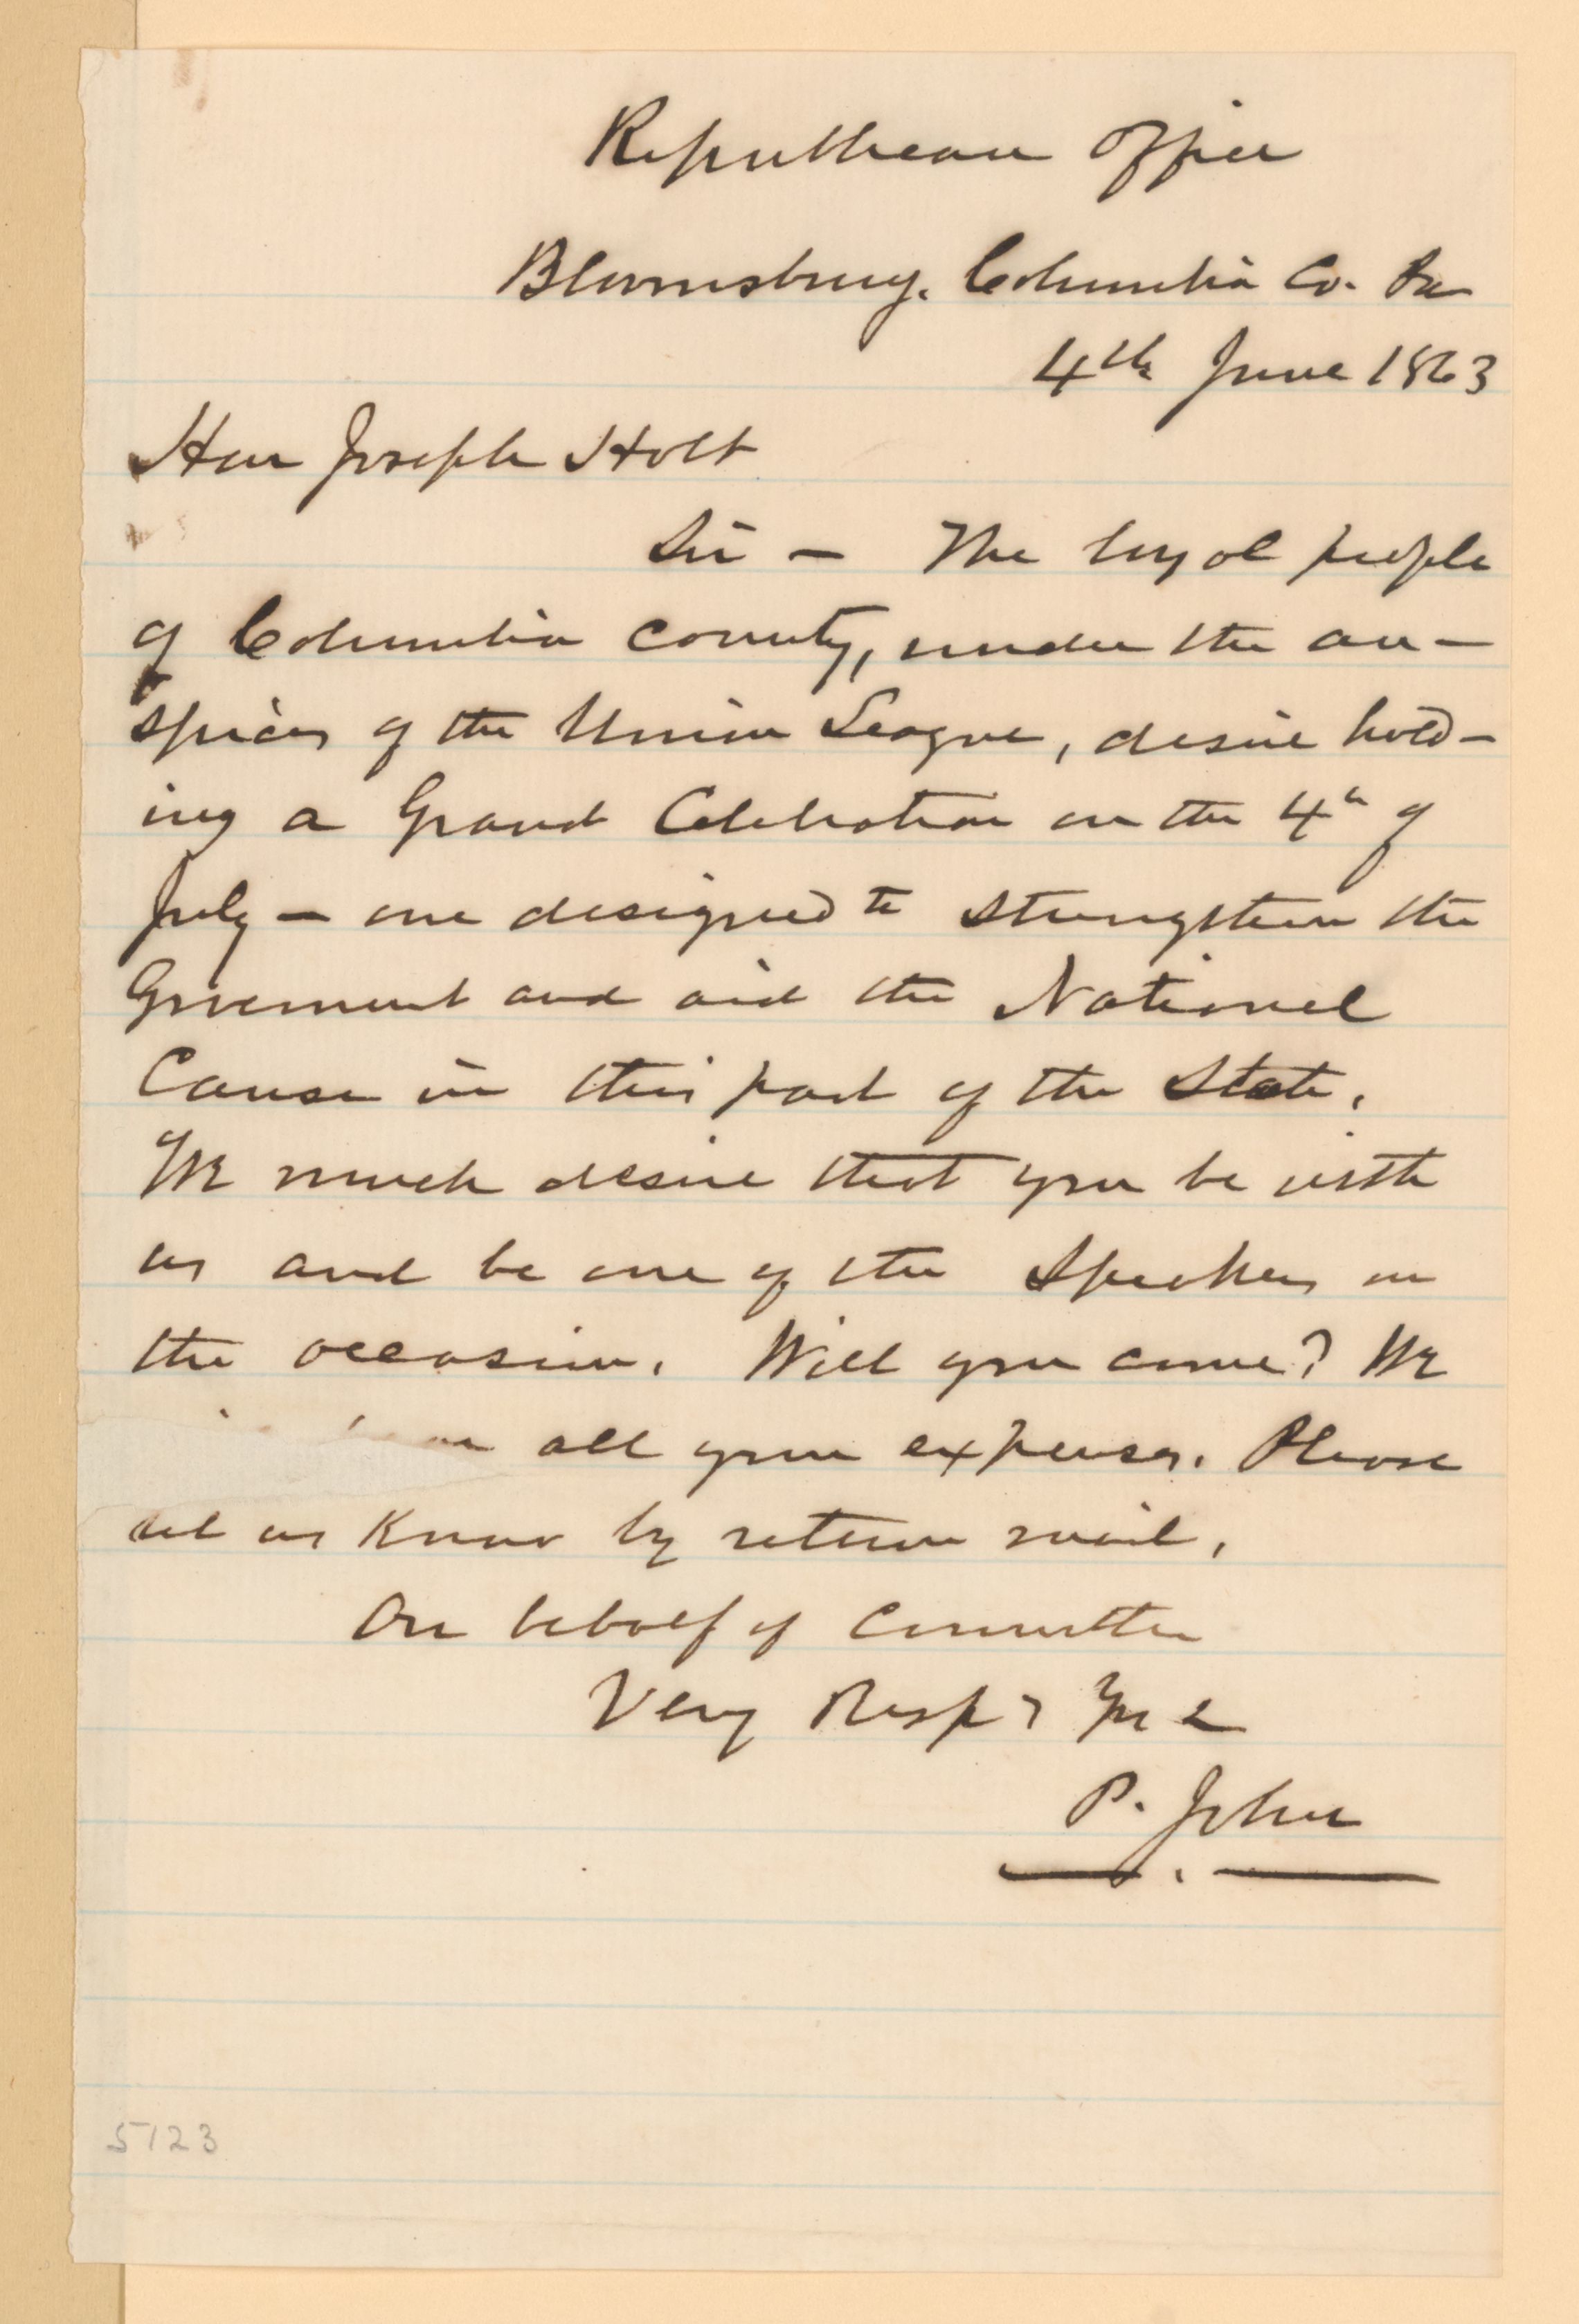 Republican Office
Bloomsburg, Columbia Co. Pa
4th June 1863
Hon Joseph Holt
Sir — The loyal people
of Columbia County, under the au-
spices of the Union League, desire hold-
ing a Grand Celebration on the 4th of
July — one designed to strengthen the
Goverment and aid the National
Cause in this part of the State.
We much desire that you be with
us and be one of the Speakers on
the occasion. Will you come? We
all your expenses. Please
let us Know by return mail.
On behalf of Committee
Very Respy Yrs &
P. John
5123